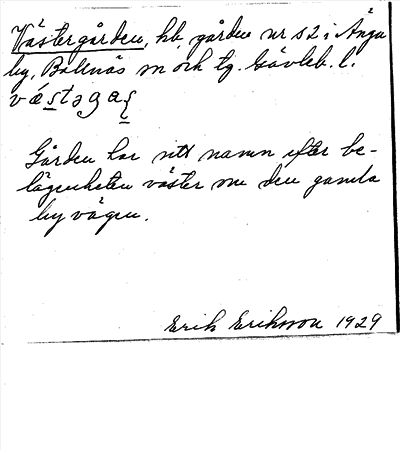 Västergården, hb, gården nr 52 i Änga
by, Bollnäs sn och tg. Gävleb. l.
Gården har sitt namn efter be-
lägenheten väster om den gamla
byvägen.
Erik Eriksson 1929